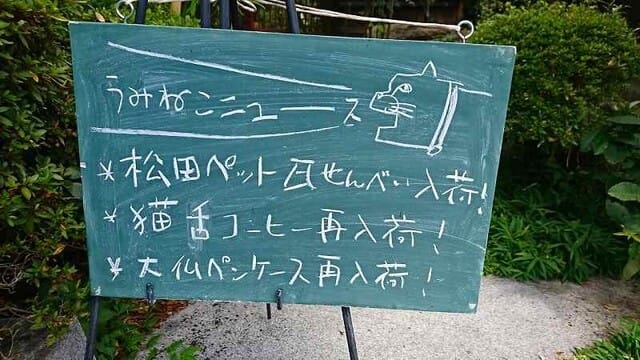 うみねこニュース
*松田ペット瓦せんべい入荷!
*猫舌コーヒー再入荷!
*大仏ペンケース再入荷!